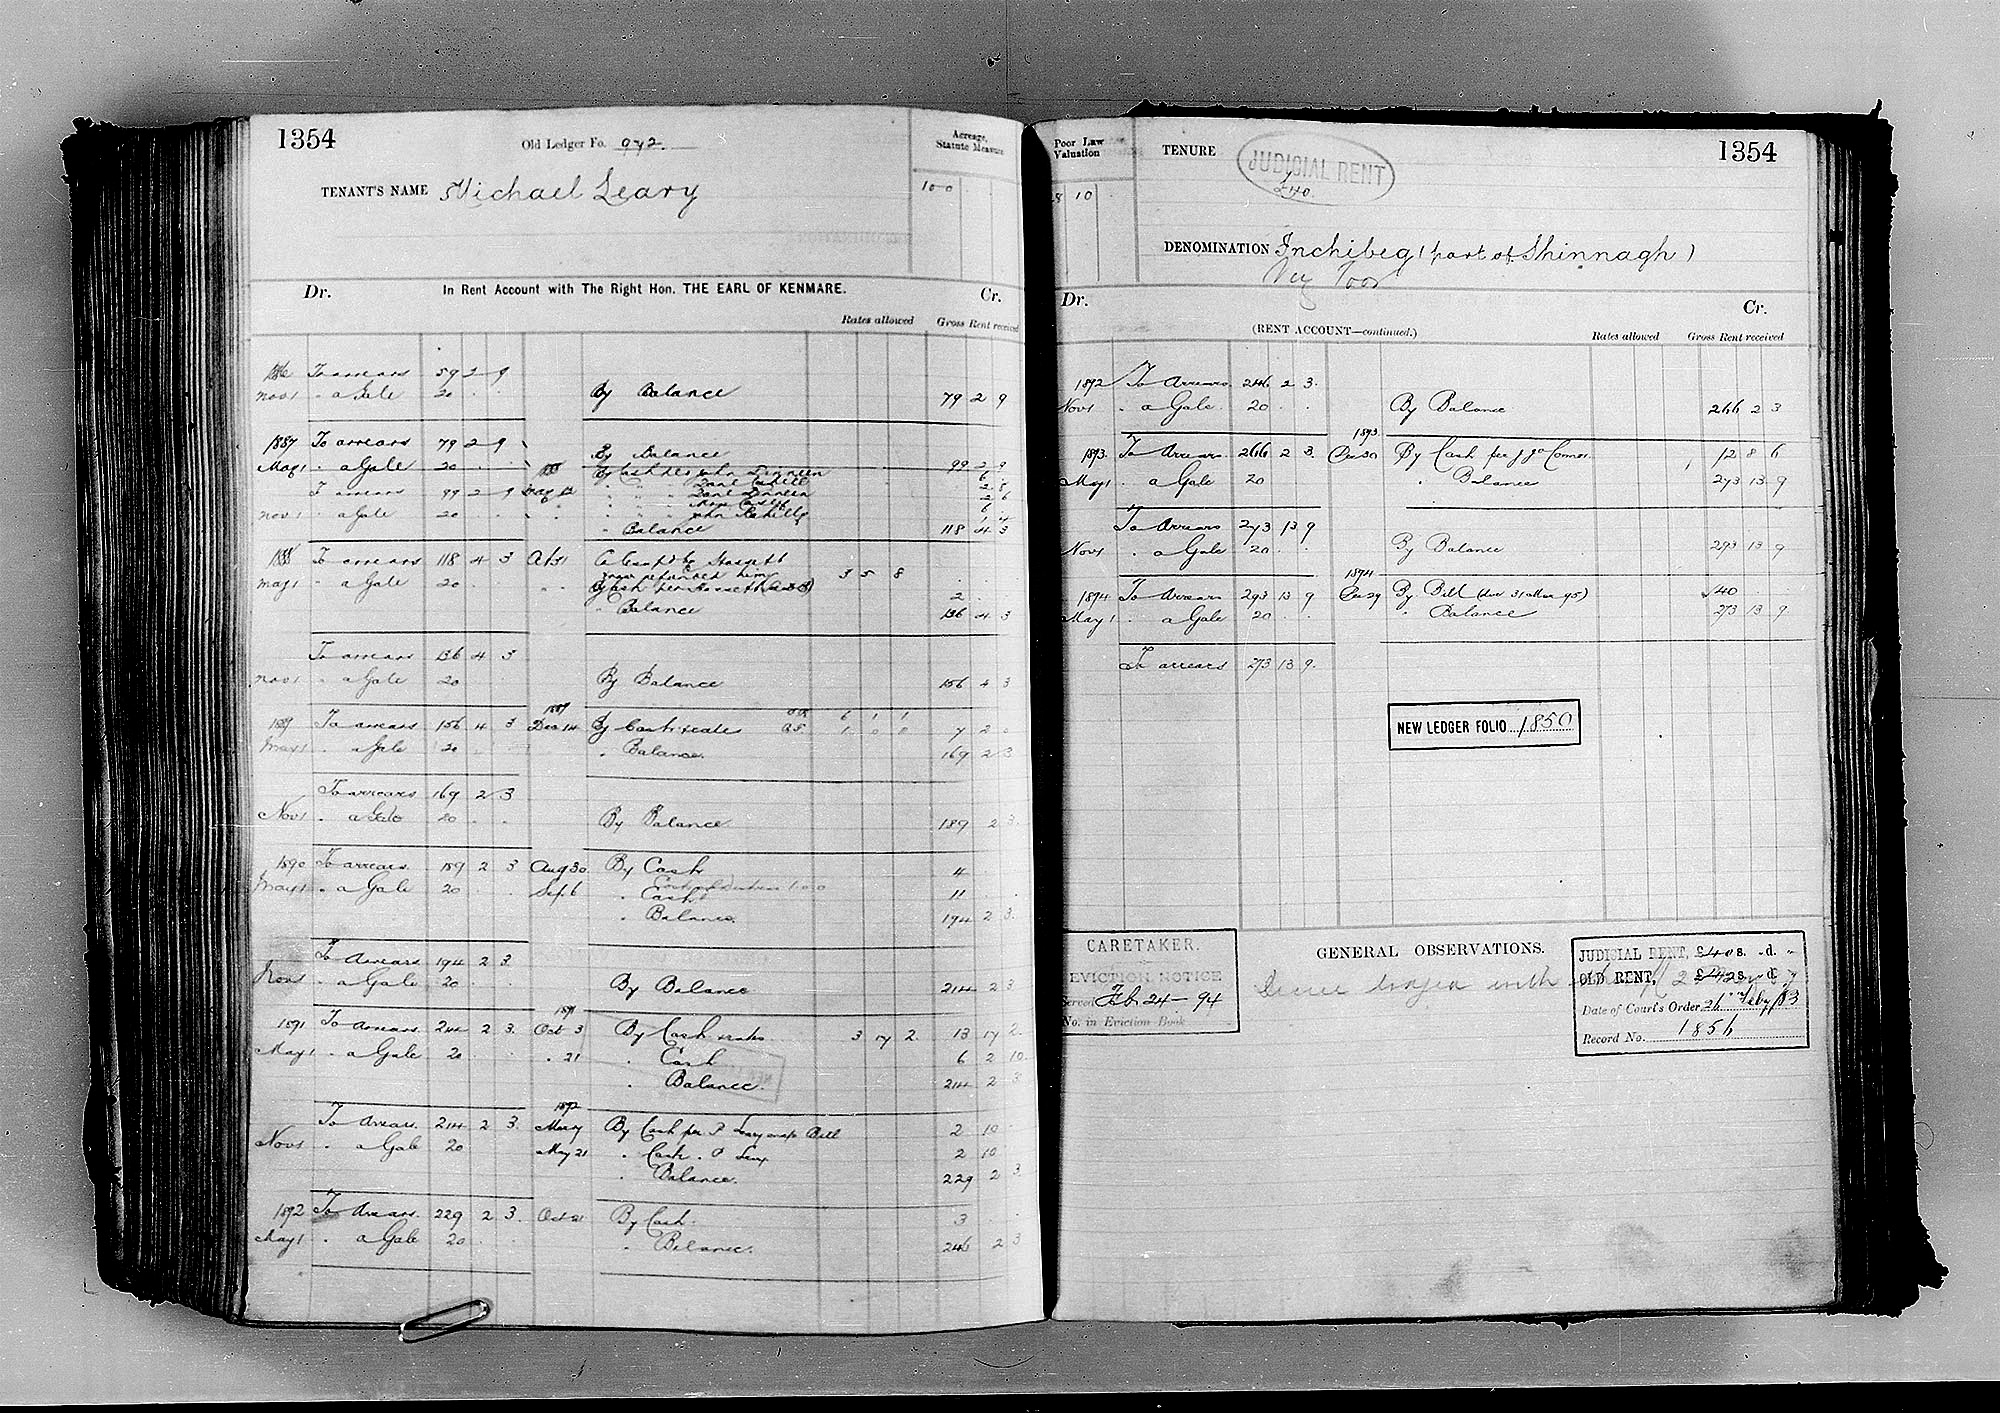 1354
Old Ledger Fo. 972.
Acreage, Statute Measure
TENANT'S NAME Michael Leary
100
Dr. In Rent Account with The Right Hon. THE EARL OF KENMARE. Cr.
Rates allowed Gross Rent received
1886 To arrears 59 2 9
Nov 1 " a Gale 20 . . By Balance 79 2 9
1887 To arrears 79 2 9 By Balance
May 1 " a Gale 20 . . 99 2 9
To arrears 99 2 9
Nov 1 " a Gale 20
" Balance 118 4 3
1888 To arrears 118 4 3
3 5 8
May 1 " a Gale 20 2
" Balance 136 4 3
To arrears 136 4 3
Nov 1 " a Gale 20 By Balance 156 4 3
1889
1889 To arrears 156 4 3 Dec 14 By Cash & rates 6 1 1
May 1 " a Gale 20 . . 7 2 0
" Balance. 169 2 3
To arrears 169 2 3
Nov 1 " a Gale 20 . . By Balance 189 2 3
1890 To arrears 189 2 3 Aug 30 By Cash 4
May 1 " a Gale 20 . . Sept 6 " Cash 11
" Balance. 194 2 3
To Arrears 194 2 3
Nov 1 " a Gale 20 By Balance 214 2 3
1891
1891 To Arrears 214 2 3 Oct 3 By Cash & rates 3 17 2 13 17 2
May 1 " a Gale 20 " 21 " Cash 6 2 10
" Balance. 214 2 3
1892
To Arrears 214 2 3 May By Cash per P Leary Bill 2 10
Nov 1 " a Gale 20 May 21 " Cash " P Leary 2 10
" Balance. 229 2 3
1892 To Arrears 229 2 3 Oct 21 By Cash 3
May 1 " a Gale 20 . . " Balance. 246 2 3
Poor Law Valuation
8 10
TENURE
JUDICIAL RENT
£40
1354
DENOMINATION Inchibeg (part of Shinnagh)
Very Poor
Dr. Cr.
(RENT ACCOUNT—continued.)
Rates allowed Gross Rent received
1892 To Arrears 246 2 3
Nov 1 " a Gale 20 . . By Balance 266 2 3
1893
1893 To Arrears 266 2 3 Dec 30 By Cash per 12 8 6
May 1 " a Gale 20 " Balance 273 13 9
To Arrears 273 13 9
Nov 1 " a Gale 20 . . By Balance 293 13 9
1894
1894 To Arrears 293 13 9 Dec 29 By Bill (due 31 Mar 95) 40
May 1 " a Gale 20 . . " Balance 273 13 9
To arrears 273 13 9
NEW LEDGER FOLIO 1850
CARETAKER.
EVICTION NOTICE
Served Feb 24 - 94
No. in Eviction Book
GENERAL OBSERVATIONS.
JUDICIAL RENT, £40 s. " d. "
OLD RENT, £42 s. " d. "
Date of Court's Order 26 Feby 83
Record No. 1856